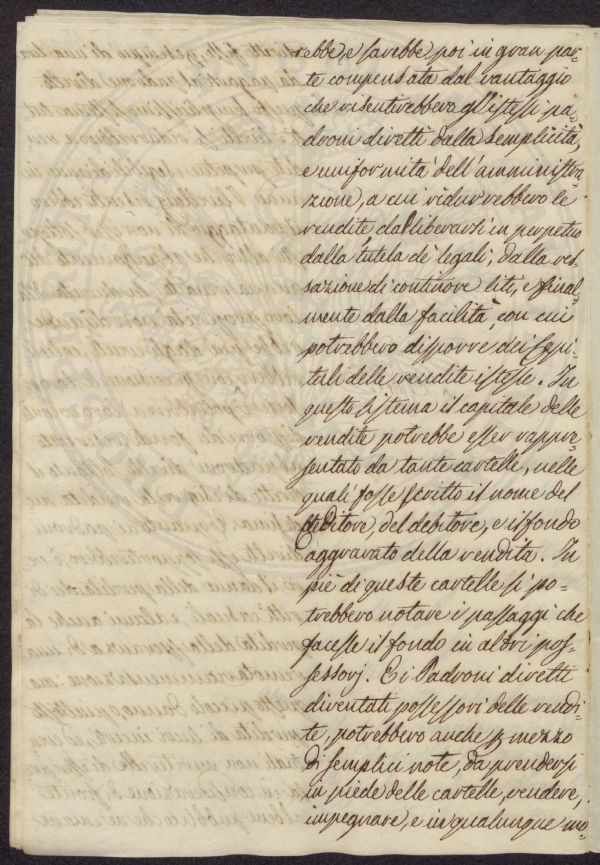 rebbe, e sarebbe poi in gran par-
te compensata dal vantaggio
che risentirebbero gl'istessi pa-
droni diretti dalla semplicità,
e uniformità dell'amministra-
zione, a cui ridurrebbero le
rendite, dal liberarsi in perpetuo
dalla tutela de' legali, dalla ves-
sazione di continove liti, e final-
mente dalla facilità, con cui
potrebbero disporre dei Capi-
tali delle rendite istesse. In
questo sistema il capitale delle
rendite potrebbe esser rappre-
sentato da tante cartelle, nelle
quali fosse scritto il nome del
Creditore, del debitore, e il fondo
aggravato della rendita. In
piè di queste cartelle si po-
trebbero notare i passaggi che
facesse il fondo in altri pos-
sessorj. E i Padroni diretti
diventati possessori delle rendi-
te, potrebbero anche p mezzo
di semplici note, da prendersi
in piede delle cartelle, vendere,
impegnare, e in qualunque mo-